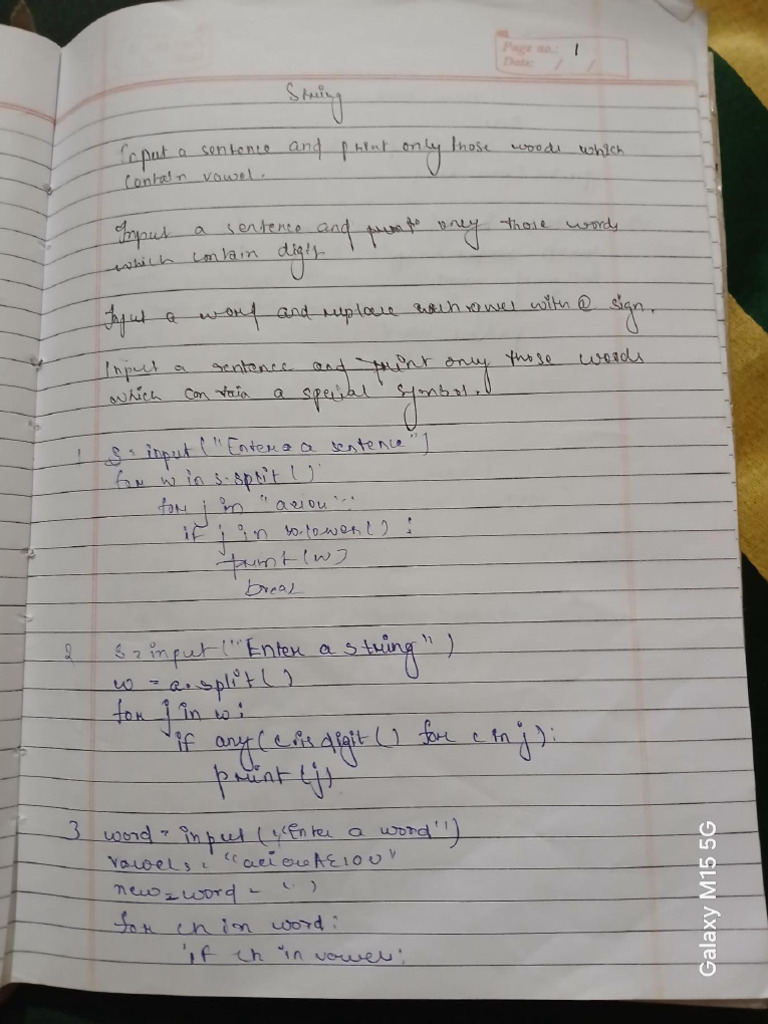 Page no.: 1
Date: / /
String
Input a sentence and print only those words which
contain vowel.
Input a sentence and print only those words
which contain digit
Input a word and replace each vowel with @ sign.
Input a sentence and print only those words
which contain a special symbol.
1 S = input ("Enter a sentence")
for w in s.split ()
for j in "aeiou":
if j in w.lower() :
print (w)
break
2 s = input ("Enter a string")
w = a.split ()
for j in w:
if any (c.isdigit () for c in j):
print (j)
3 word = input ("Enter a word")
vowels = "aeiouAEIOU"
new_word = ' '
for ch in word:
if ch in vowel:
Galaxy M15 5G